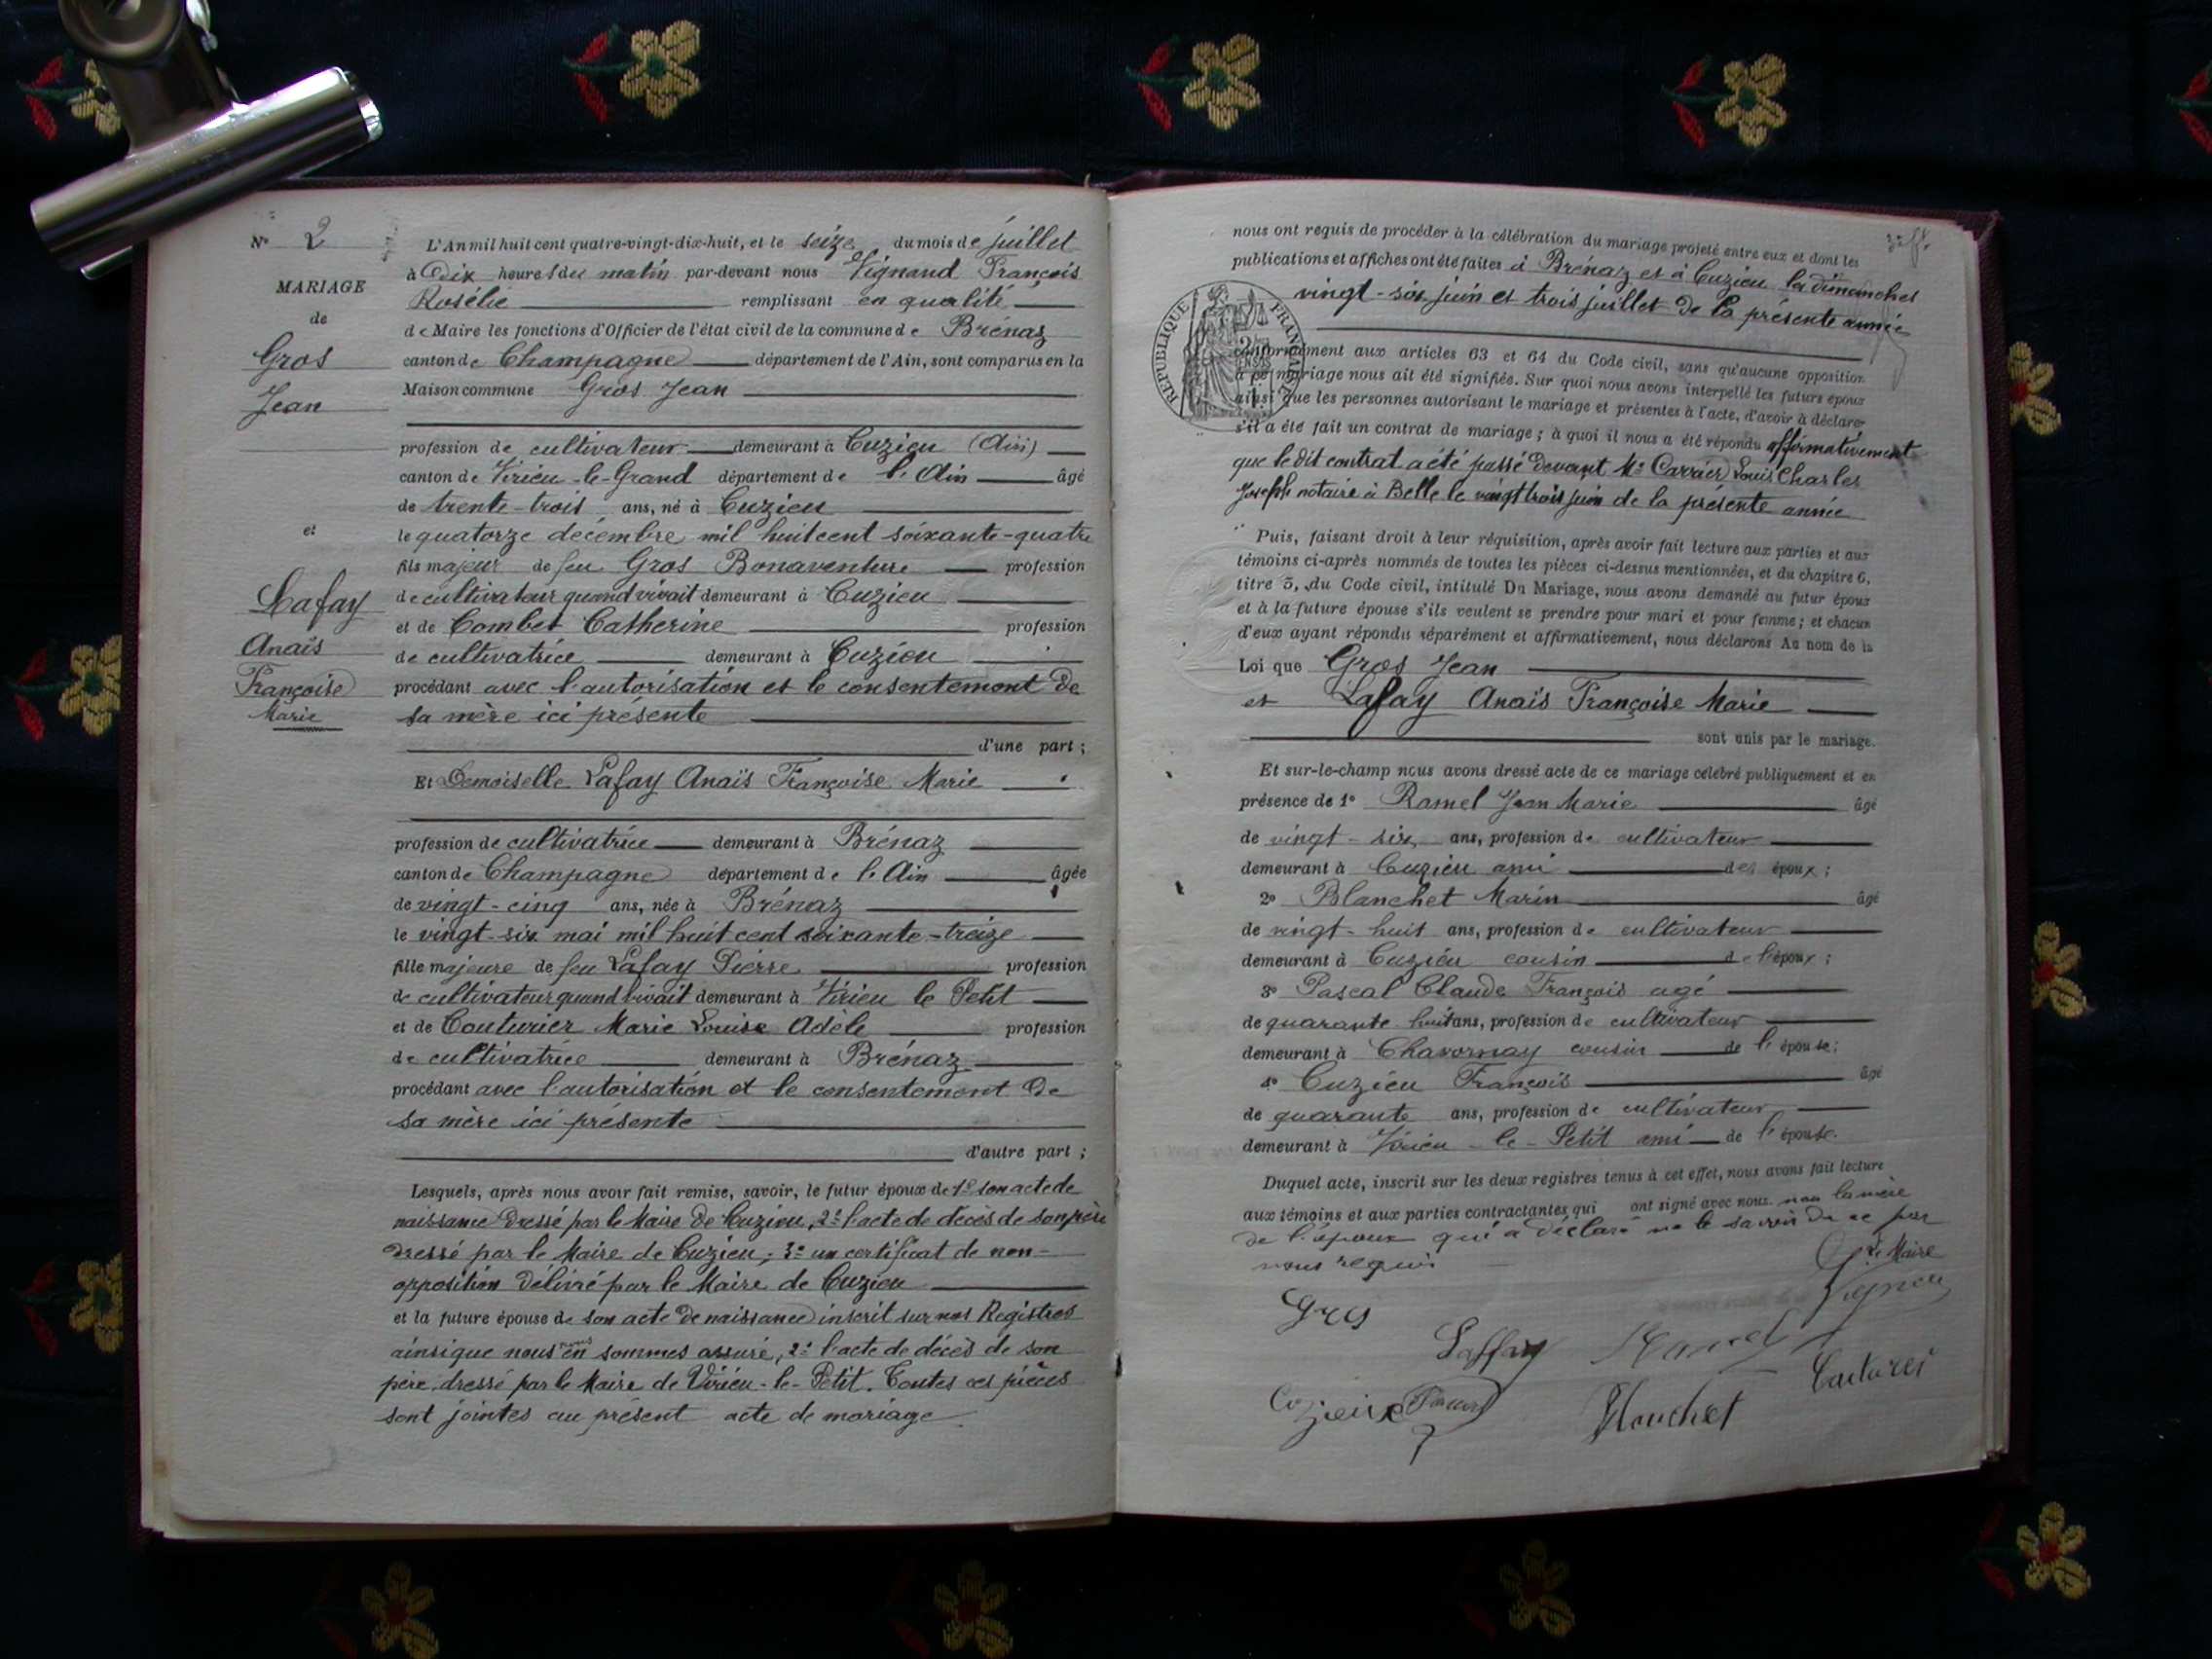 N° 2
MARIAGE
de
Gros
Jean
et
Lafay
Anaïs
Françoise
Marie
L'An mil huit cent quatre-vingt-dix-huit, et le seize du mois de juillet
à Dix heures du matin par-devant nous Vignand François
Rosélie remplissant en qualité
de Maire les fonctions d'Officier de l'état civil de la commune de Brénaz
canton de Champagne département de l'Ain, sont comparus en la
Maison commune Gros Jean
profession de cultivateur demeurant à Cuzieu (Ain)
canton de Virieu-le-Grand département de l'Ain âgé
de trente-trois ans, né à Cuzieu
le quatorze décembre mil huit cent soixante-quatre
fils majeur de feu Gros Bonaventure profession
de cultivateur quand vivait demeurant à Cuzieu
et de Combet Catherine profession
de cultivatrice demeurant à Cuzieu
procédant avec l'autorisation et le consentement de
sa mère ici présente
d'une part ;
Et Demoiselle Lafay Anaïs Françoise Marie
profession de cultivatrice demeurant à Brénaz
canton de Champagne département de l'Ain âgée
de vingt-cinq ans, née à Brénaz
le vingt-six mai mil huit cent soixante-treize
fille majeure de feu Lafay Pierre profession
de cultivateur quand vivait demeurant à Virieu le Petit
et de Couturier Marie Louise Adèle profession
de cultivatrice demeurant à Brénaz
procédant avec l'autorisation et le consentement de
sa mère ici présente
d'autre part ;
Lesquels, après nous avoir fait remise, savoir, le futur époux de 1° son acte de
naissance dressé par le Maire de Cuzieu, 2° l'acte de décès de son père
dressé par le Maire de Cuzieu ; 3° un certificat de non-
opposition délivré par le Maire de Cuzieu
et la future épouse de son acte de naissance inscrit sur nos Registres
ainsi que nous nous en sommes assuré, 2° l'acte de décès de son
père dressé par le Maire de Virieu-le-Petit. Toutes ces pièces
sont jointes au présent acte de mariage
nous ont requis de procéder à la célébration du mariage projeté entre eux et dont les
publications et affiches ont été faites à Brénaz et à Cuzieu les dimanches
vingt-six juin et trois juillet de la présente année
RÉPUBLIQUE FRANÇAISE
conformément aux articles 63 et 64 du Code civil, sans qu'aucune opposition
à ce mariage nous ait été signifiée. Sur quoi nous avons interpellé les futurs époux
ainsi que les personnes autorisant le mariage et présentes à l'acte, d'avoir à déclarer
s'il a été fait un contrat de mariage ; à quoi il nous a été répondu affirmativement
que le dit contrat a été passé devant Me Carrier Louis Charles
Joseph notaire à Belle le vingt trois juin de la présente année
Puis, faisant droit à leur réquisition, après avoir fait lecture aux parties et aux
témoins ci-après nommés de toutes les pièces ci-dessus mentionnées, et du chapitre 6,
titre 5, du Code civil, intitulé Du Mariage, nous avons demandé au futur époux
et à la future épouse s'ils veulent se prendre pour mari et pour femme ; et chacun
d'eux ayant répondu séparément et affirmativement, nous déclarons Au nom de la
Loi que Gros Jean
et Lafay Anaïs Françoise Marie
sont unis par le mariage.
Et sur-le-champ nous avons dressé acte de ce mariage célébré publiquement et en
présence de 1° Ramel Jean Marie âgé
de vingt-six ans, profession de cultivateur
demeurant à Cuzieu ami des époux ;
2° Blanchet Marin âgé
de vingt-huit ans, profession de cultivateur
demeurant à Cuzieu cousin de l'époux ;
3° Pascal Claude François agé
de quarante huit ans, profession de cultivateur
demeurant à Chavornay cousin de l'épouse ;
4° Cuzieu François âgé
de quarante ans, profession de cultivateur
demeurant à Virieu-le-Petit ami de l'épouse.
Duquel acte, inscrit sur les deux registres tenus à cet effet, nous avons fait lecture
aux témoins et aux parties contractantes qui ont signé avec nous. non la mère
de l'époux qui a déclaré ne le savoir de ce par
nous requis
Le Maire
Gros
Laffay
Ramel
Blanchet